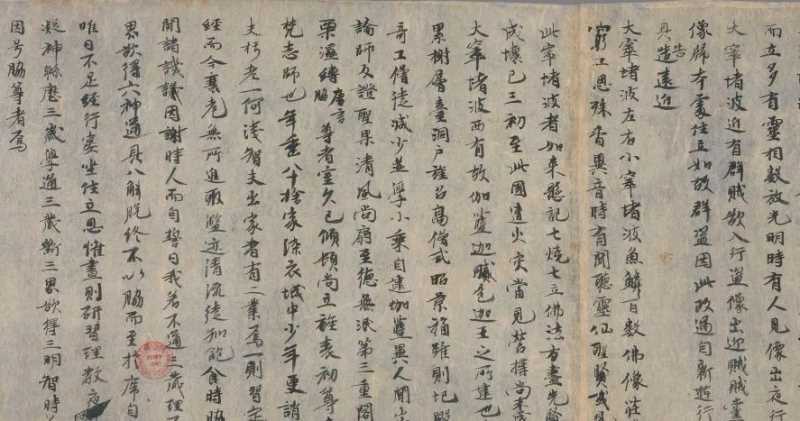 而立多有靈相數放光明時有人見像出夜行
大窣堵波近有群賊欲入行盜像出迎賊賊黨
像歸本處住立如故群盜因此改過自新遊行
具告遠近
大窣堵波左右小窣堵波魚鱗百數佛像莊
窮工思殊香異音時有聞聽靈仙聖賢或見
此窣堵波者如來懸記七燒七立佛法方盡先賢
成壞已三初至此國遭火災當見營構尚未成
大窣堵波西有故伽藍迦膩色迦王之所建也
累榭層臺洞戶旌召高僧式昭景福雖則圮毀
奇工僧徒減少並學小乘自建伽藍異人間出
論師及證聖果清風尚扇至德無泯第三重閣
栗濕縛唐言脇尊者室久已傾頓尚立旌表初尊者
梵志師也年垂八十捨家染衣城中少年更誚
夫朽老一何淺智夫出家者有二業焉一則習定
經而今衰老無所進取濫迹清流徒知飽食時脇
聞諸譏議因謝時人而自誓曰我若不通三藏理不
界欲得六神通具八解脫終不以脇而至於席自
唯日不足經行宴坐住立思惟晝則研習理教夜
凝神綿歷三歲學通三藏斷三界欲得三明智時
因号脇尊者焉